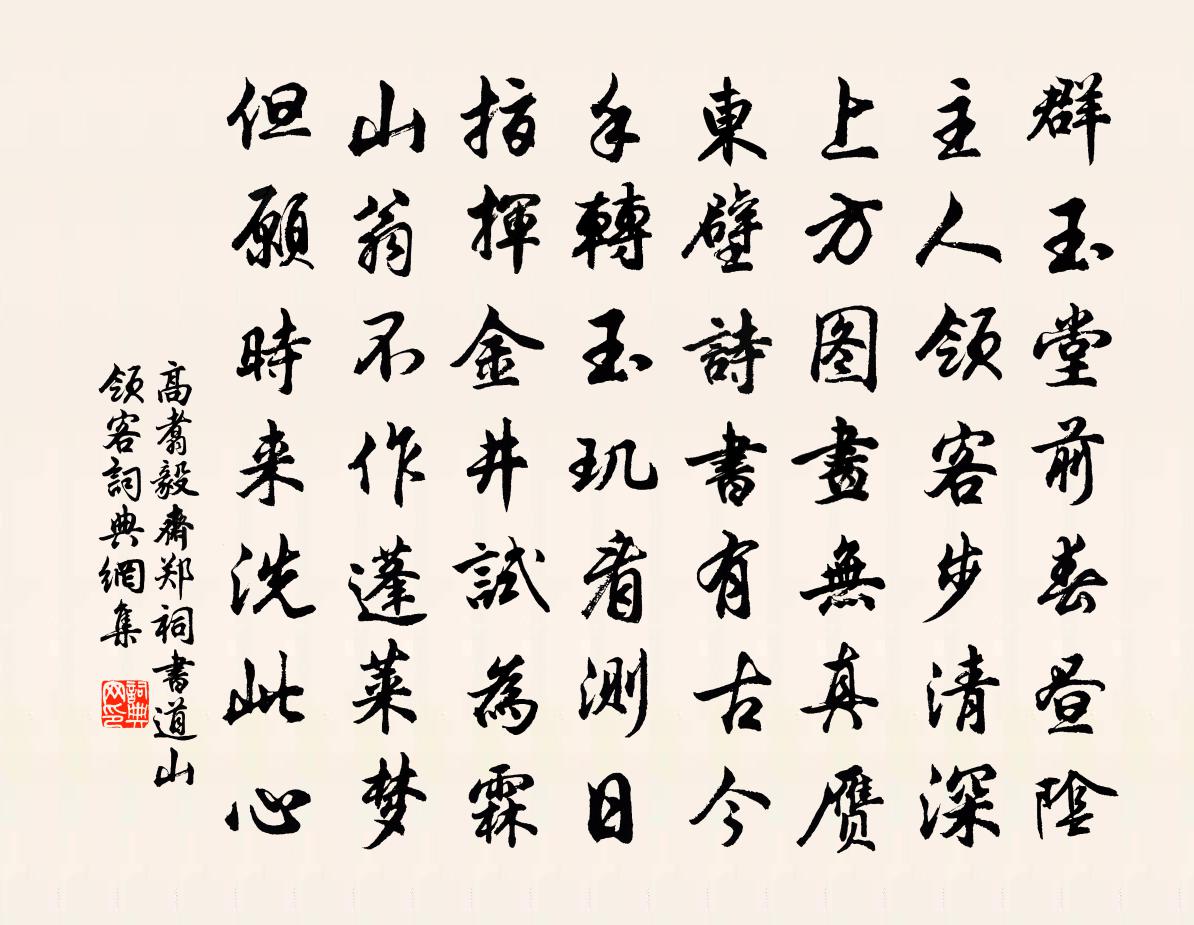 群玉堂前春昼陰
主人领客步清深
上方图畫無真赝
東壁詩書有古今
手轉玉玑看測日
指揮金井試為霖
山翁不作蓬莱梦
但願時来洗此心
高翥毅齋郑祠書道山
领客詞典網集
詞典网印